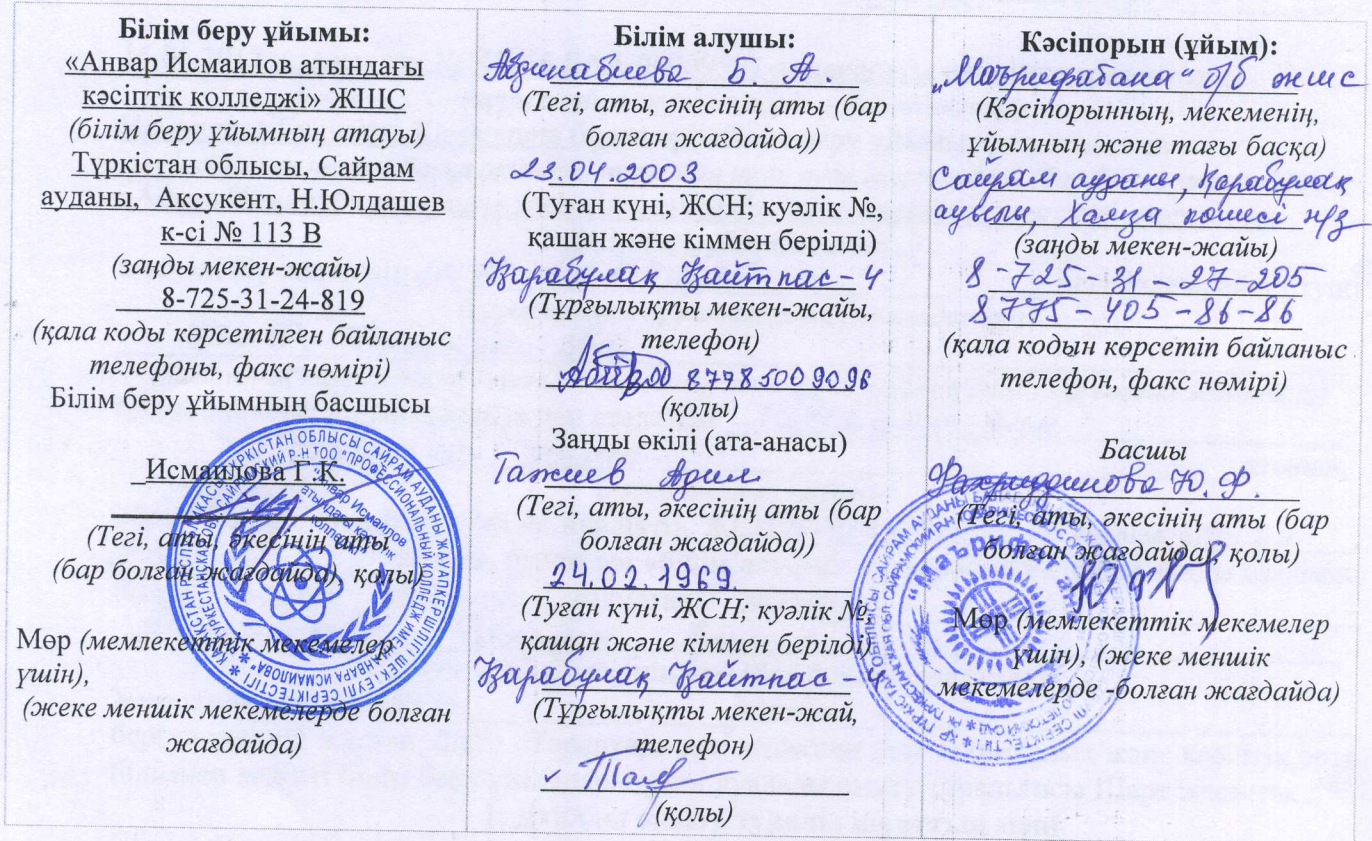 Білім беру ұйымы:
«Анвар Исмаилов атындағы
кәсіптік колледжі» ЖШС
(білім беру ұйымның атауы)
Түркістан облысы, Сайрам
ауданы, Аксукент, Н.Юлдашев
к-сі № 113 В
(заңды мекен-жайы)
8-725-31-24-819
(қала коды көрсетілген байланыс
телефоны, факс нөмірі)
Білім беру ұйымның басшысы
Исмаилова Г.К.
(Тегі, аты, әкесінің аты
(бар болған жағдайда), қолы)
Мөр (мемлекеттік мекемелер
үшін),
(жеке меншік мекемелерде болған
жағдайда)
Білім алушы:
Абдинабиева Б. А
(Тегі, аты, әкесінің аты (бар
болған жағдайда))
23.04.2003
(Туған күні, ЖСН; куәлік №,
қашан және кіммен берілді)
Қарабулақ Қайтпас-4
(Тұрғылықты мекен-жайы,
телефон)
87785009096
(қолы)
Заңды өкілі (ата-анасы)
Тажиев Адил
(Тегі, аты, әкесінің аты (бар
болған жағдайда))
24.02.1969.
(Туған күні, ЖСН; куәлік №,
қашан және кіммен берілді)
Қарабулақ Қайтпас-4
(Тұрғылықты мекен-жай,
телефон)
(қолы)
Кәсіпорын (ұйым):
„Маърифабана" б/б жшс
(Кәсіпорынның, мекеменің,
ұйымның және тағы басқа)
Сайрам ауданы, Қарабулақ
ауылы, Хамза көшесі н/з
(заңды мекен-жайы)
8-725-31-27-205
8775-405-86-86
(қала кодын көрсетіп байланыс
телефон, факс нөмірі)
Басшы
Фахриддинова Ю. Ф.
(Тегі, аты, әкесінің аты (бар
болған жағдайда), қолы)
Мөр (мемлекеттік мекемелер
үшін), (жеке меншік
мекемелерде -болған жағдайда)